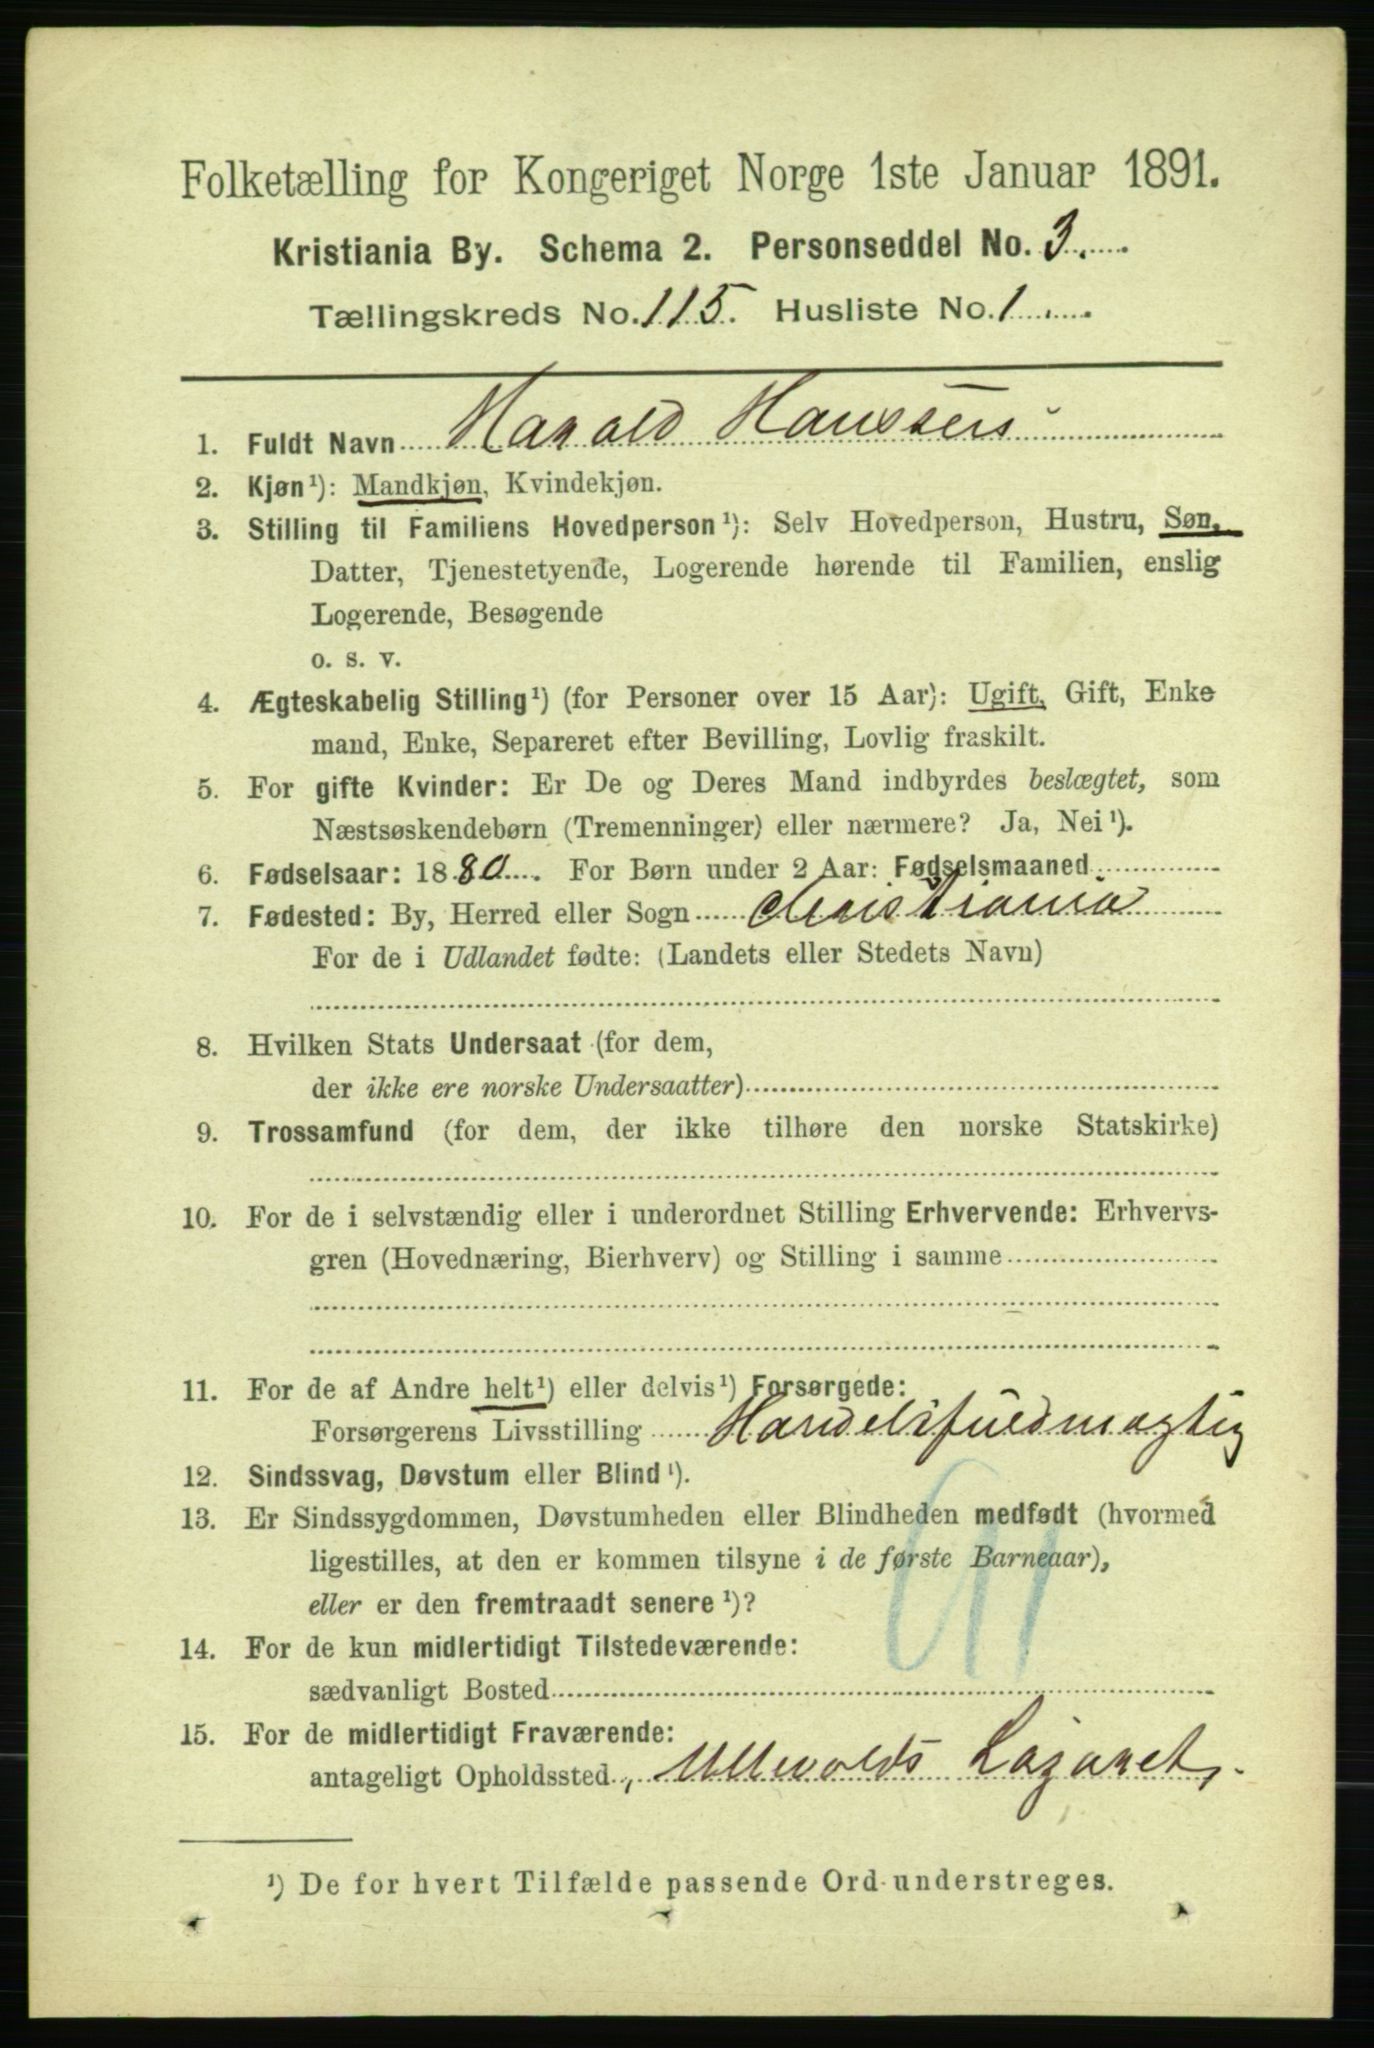 Folketælling for Kongeriget Norge 1ste Januar 1891.
Kristiania By. Schema 2. Personseddel No. 3.
Tællingskreds No. 115. Husliste No. 1
1. Fuldt Navn Harald Hanssen
2. Kjøn¹): Mandkjøn, Kvindekjøn.
3. Stilling til Familiens Hovedperson¹): Selv Hovedperson, Hustru, Søn,
Datter, Tjenestetyende, Logerende hørende til Familien, enslig
Logerende, Besøgende
o. s. v.
4. Ægteskabelig Stilling¹) (for Personer over 15 Aar): Ugift, Gift, Enke
mand, Enke, Separeret efter Bevilling, Lovlig fraskilt.
5. For gifte Kvinder: Er De og Deres Mand indbyrdes beslægtet, som
Næstsøskendebørn (Tremenninger) eller nærmere? Ja, Nei¹).
6. Fødselsaar: 1880. For Børn under 2 Aar: Fødselsmaaned
7. Fødested: By, Herred eller Sogn Christiania
For de i Udlandet fødte: (Landets eller Stedets Navn)
8. Hvilken Stats Undersaat (for dem,
der ikke ere norske Undersaatter)
9. Trossamfund (for dem, der ikke tilhøre den norske Statskirke)
10. For de i selvstændig eller i underordnet Stilling Erhvervende: Erhvervs-
gren (Hovednæring, Bierhverv) og Stilling i samme
11. For de af Andre helt¹) eller delvis¹) Forsørgede:
Forsørgerens Livsstilling Handelsfuldmægtig
12. Sindssvag, Døvstum eller Blind¹).
13. Er Sindssygdommen, Døvstumheden eller Blindheden medfødt (hvormed
ligestilles, at den er kommen tilsyne i de første Barneaar),
eller er den fremtraadt senere¹)?
14. For de kun midlertidigt Tilstedeværende:
sædvanligt Bosted
15. For de midlertidigt Fraværende:
antageligt Opholdssted, Ullevolds Lazaret.
¹) De for hvert Tilfælde passende Ord understreges.